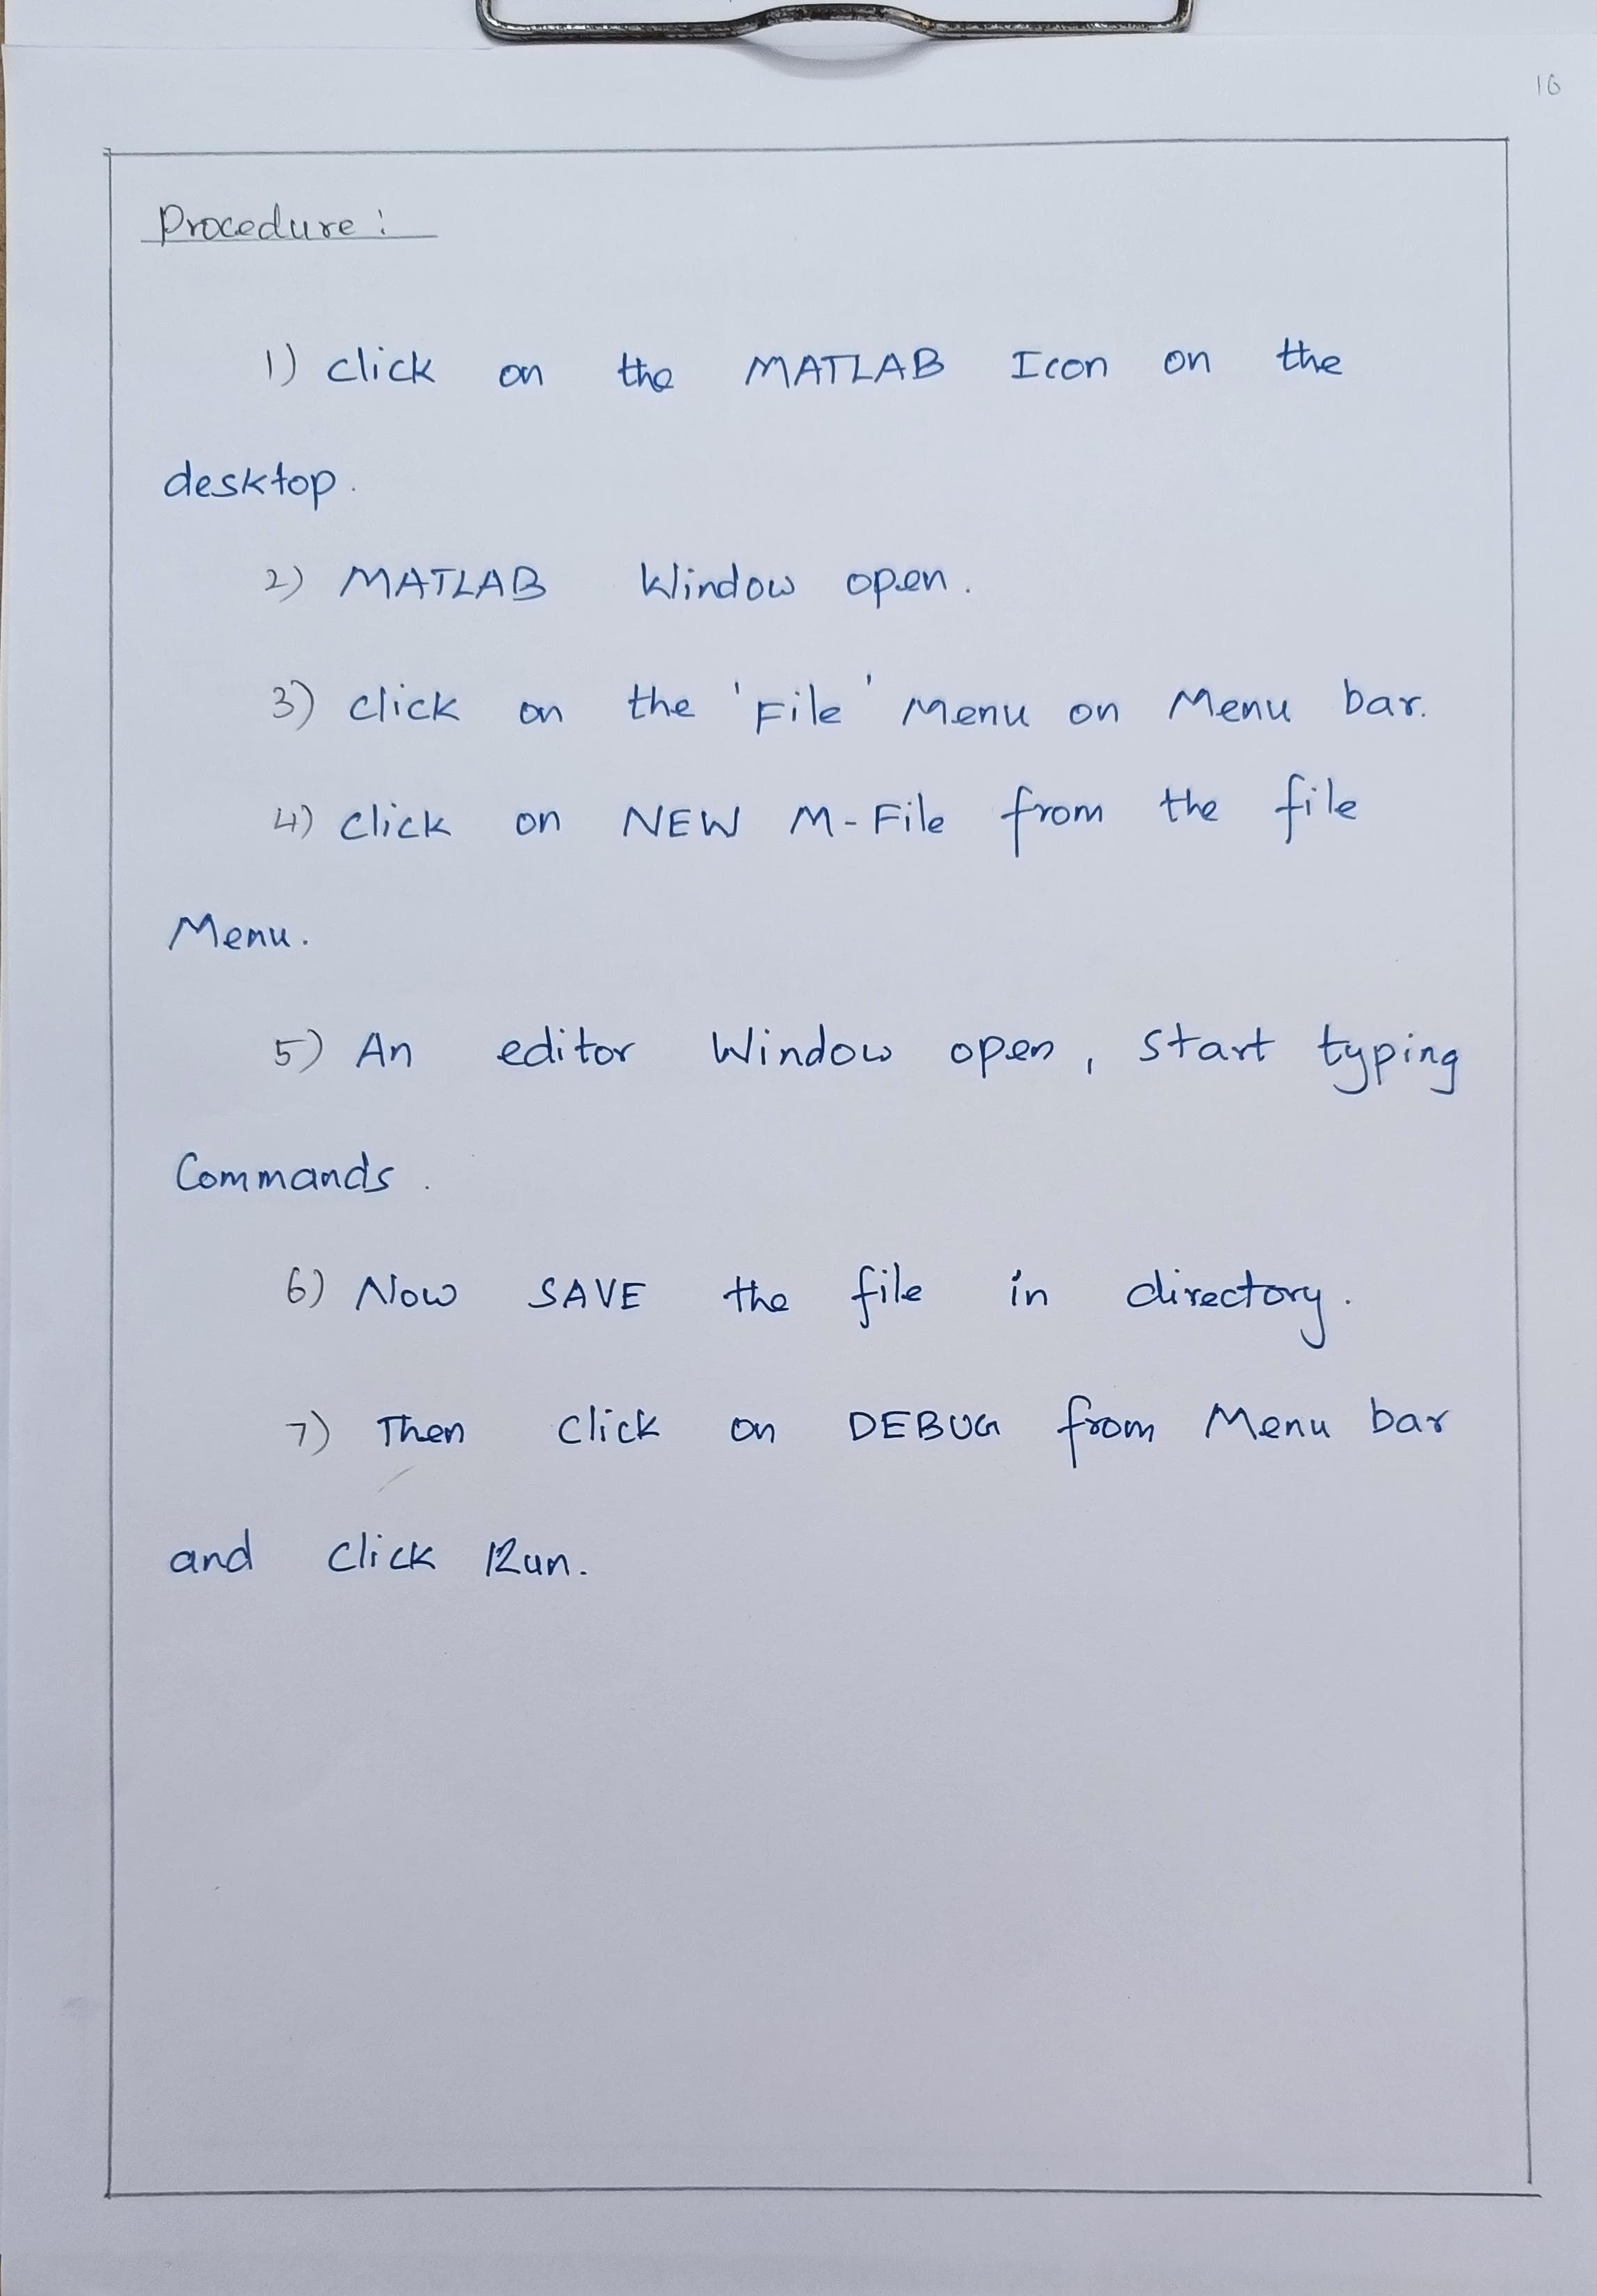 10
Procedure:
1) click on the MATLAB Icon on the
desktop.
2) MATLAB Window open.
3) click on the 'File' Menu on Menu bar.
4) click on NEW M-File from the file
Menu.
5) An editor Window open, start typing
Commands.
6) Now SAVE the file in directory.
7) Then click on DEBUG from Menu bar
and click Run.